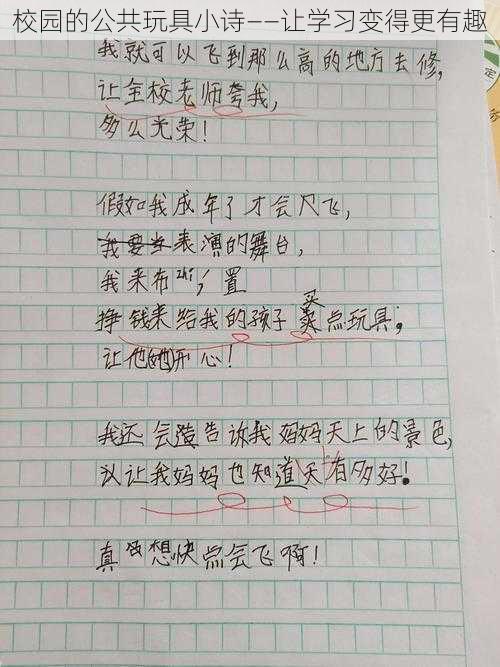 校园的公共玩具小诗——让学习变得更有趣
我就可以飞到那么高的地方去修,
让全校老师夸我,
多么光荣!
假如我成年了才会飞,
表演的舞台,
我来布zhì置
挣钱来给我的孩子买点玩具,
让他(她)开心!
我还会告诉我妈妈天上的景色,
让我妈妈也知道天有多好!
真想快点会飞啊!